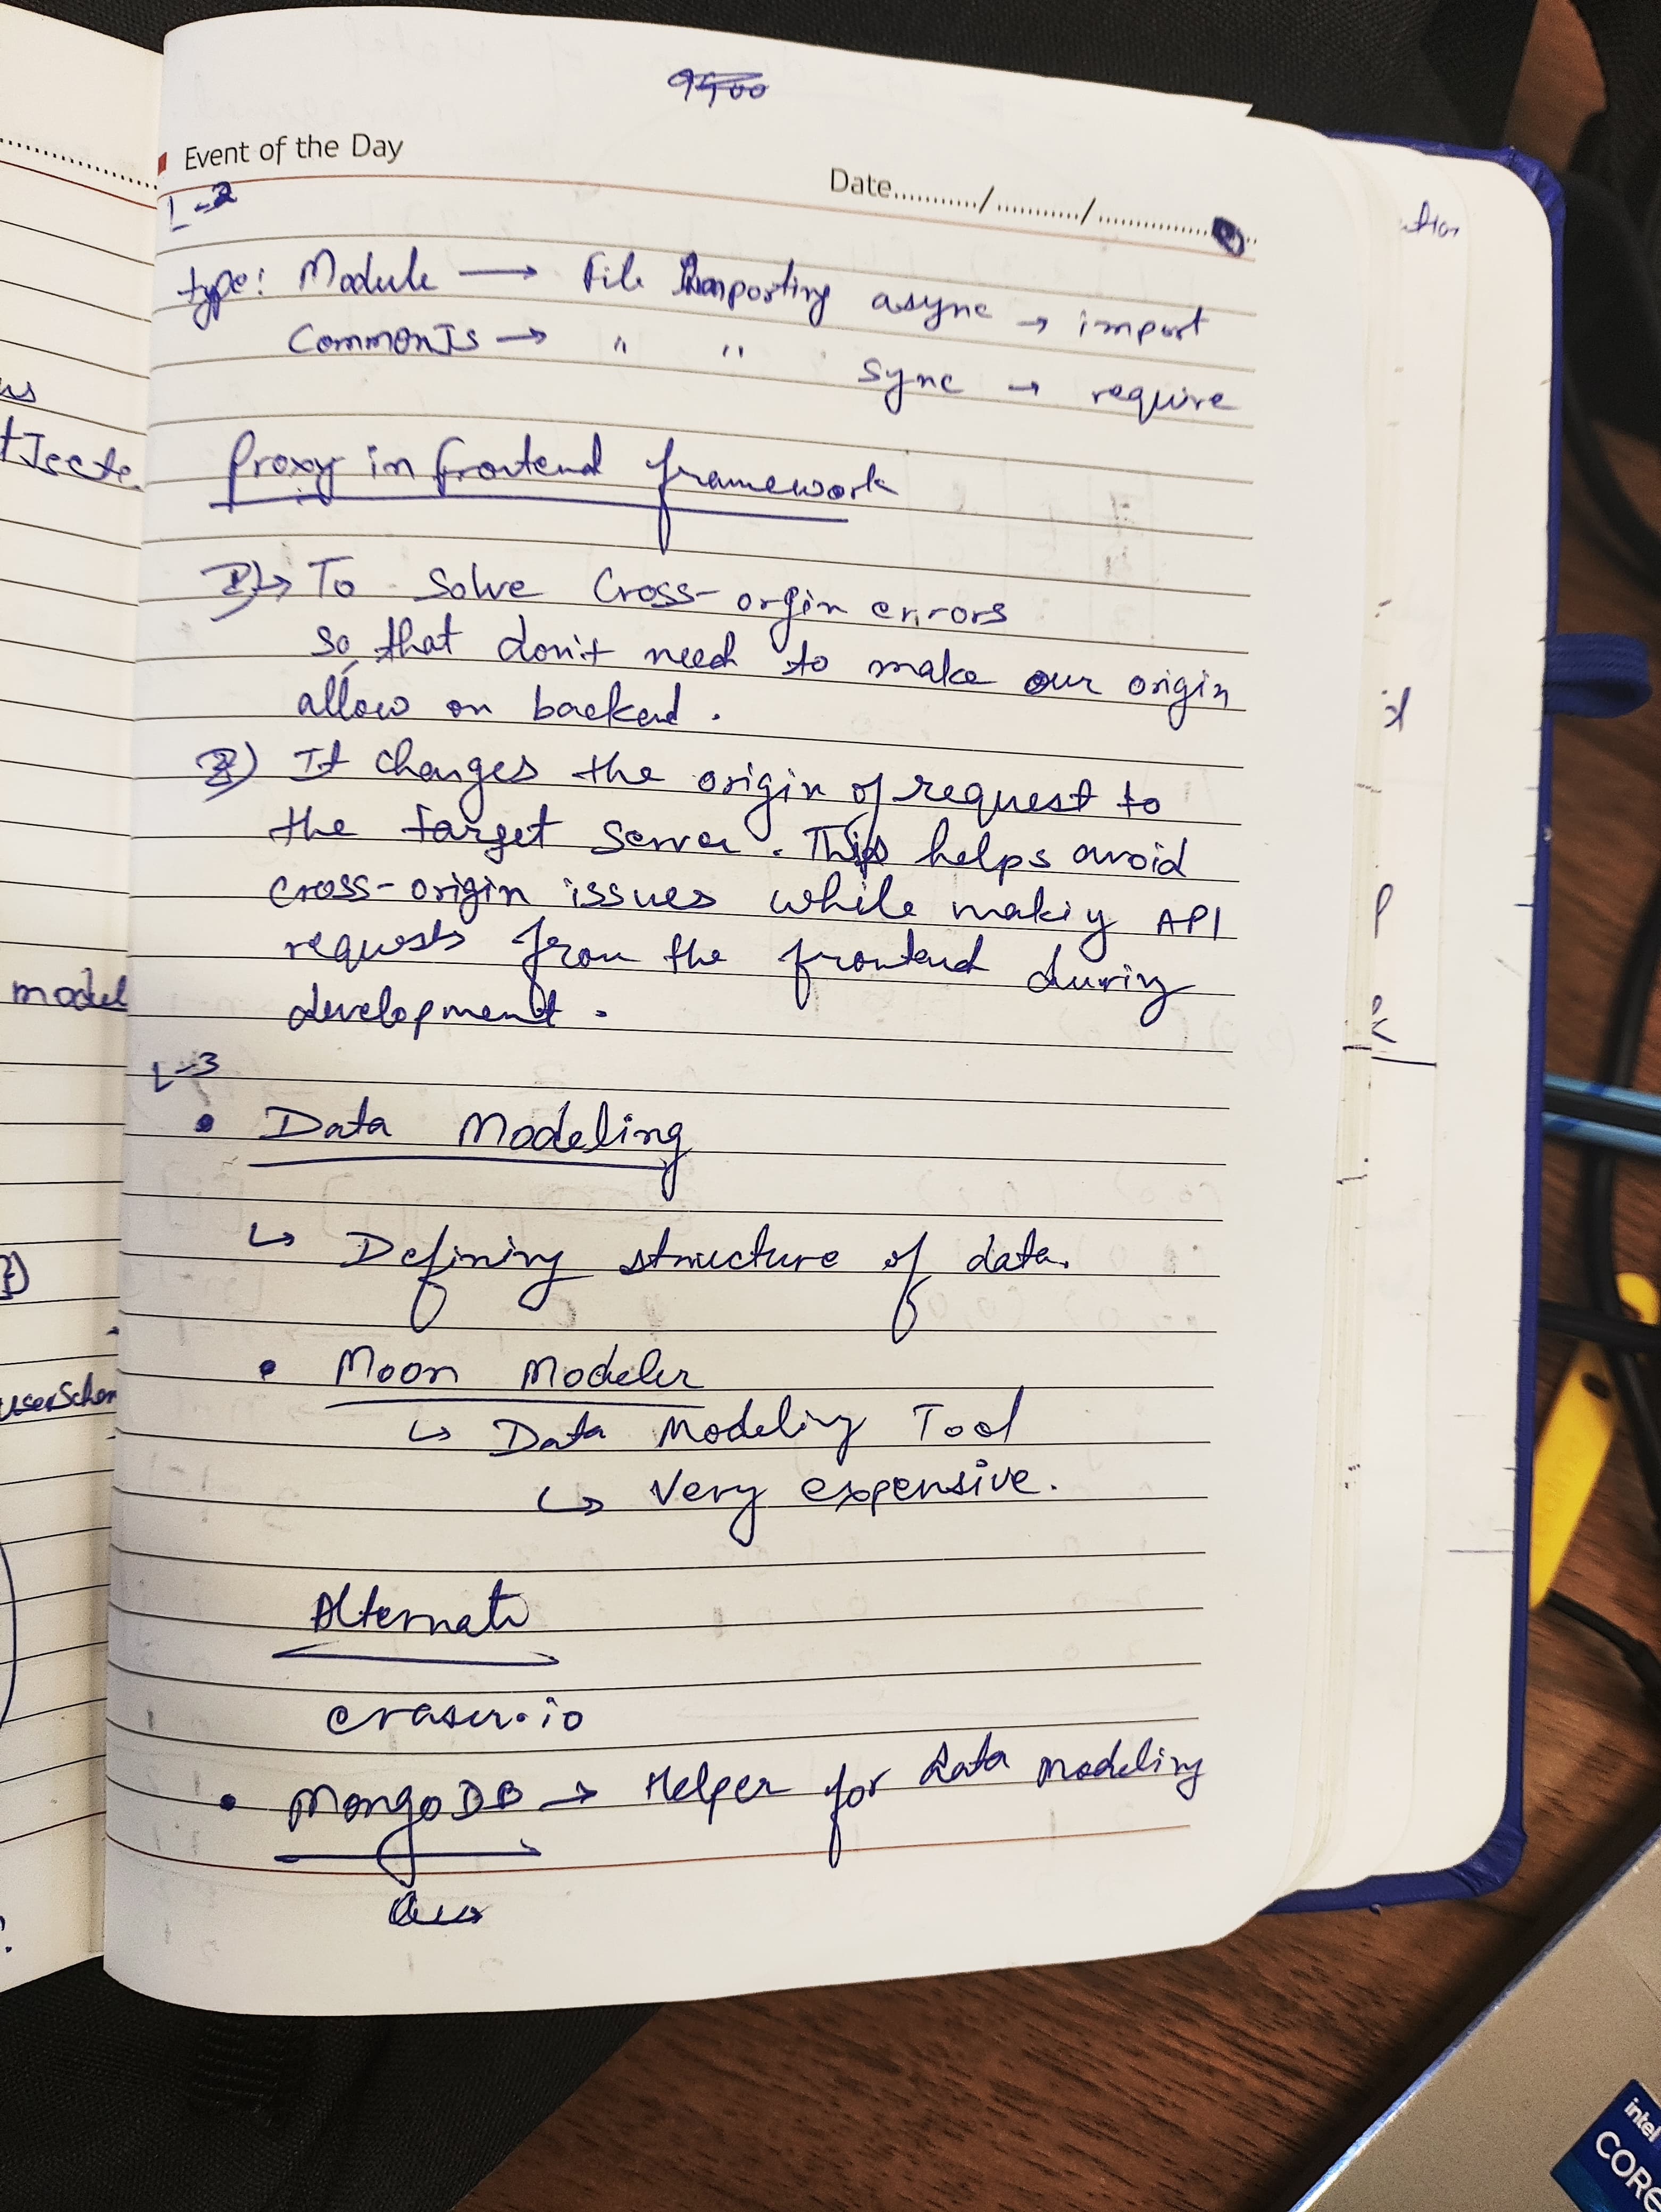 Event of the Day
Date.........../.........../..............
L-2
type: Module → File Importing async → import
CommonJs → " " sync → require
Proxy in frontend framework
1) → To solve Cross-orgin errors
so that don't need to make our origin
allow on backend.
2) It changes the origin of request to
the target server. This helps avoid
cross-origin issues while making API
requests from the frontend during
development.
L-3
• Data Modeling
↳ Defining structure of data.
• Moon Modeler
↳ Data Modeling Tool
↳ Very expensive.
Alternati
eraser.io
• MongoDB → Helper for data modeling
model
userSchem
intel
CORE